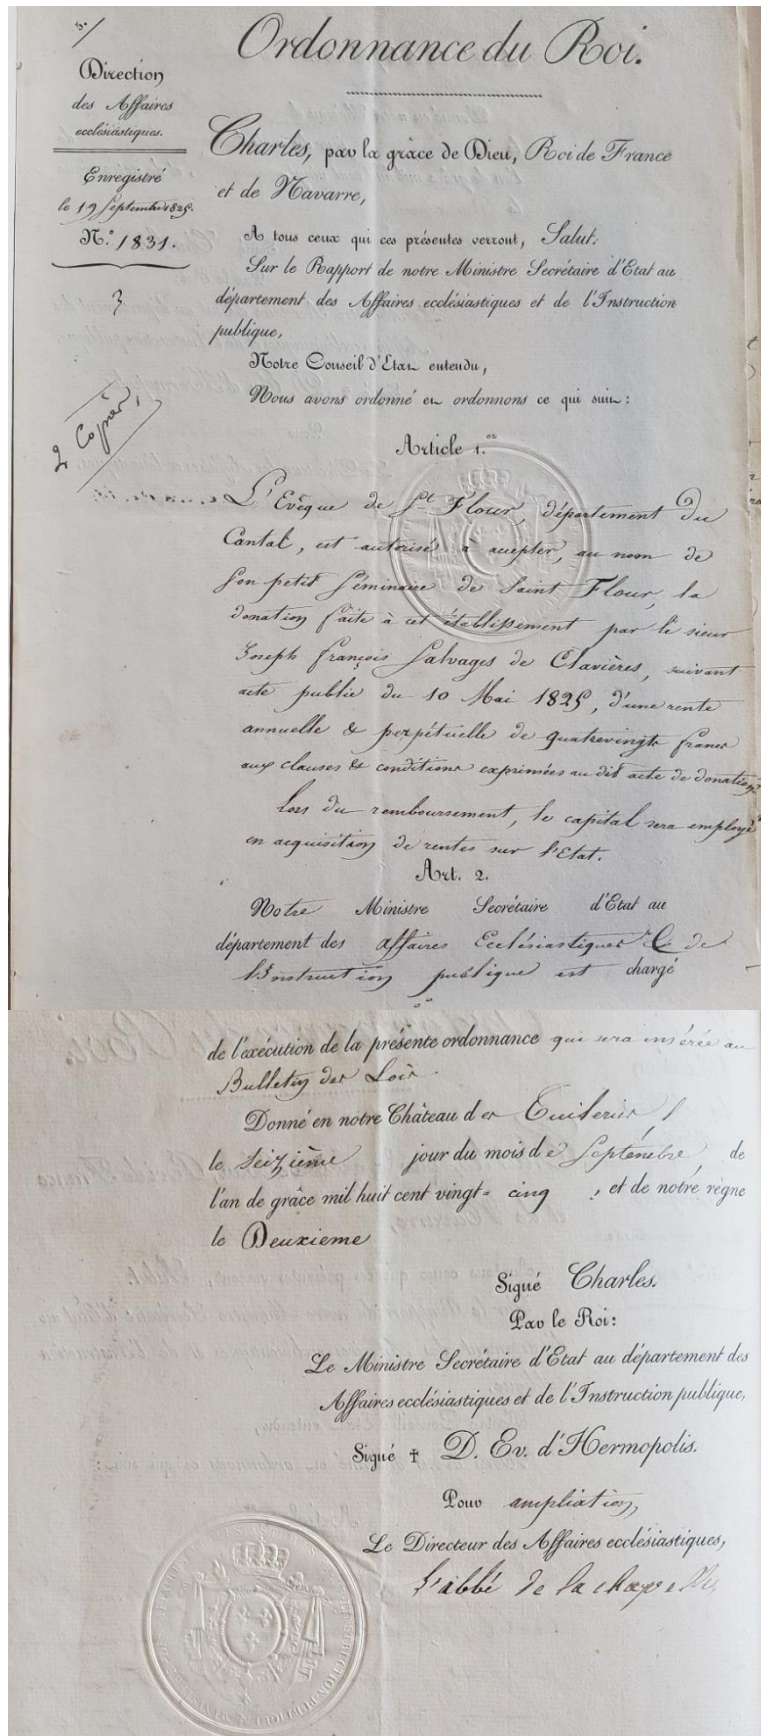 5.
Ordonnance du Roi.
Direction
des Affaires
ecclésiastiques.
Enregistré
le 19 Septembre 1825.
N.° 1831.
3
2 Copier,
Charles, par la grâce de Dieu, Roi de France
et de Navarre,
A tous ceux qui ces présentes verront, Salut.
Sur le Rapport de notre Ministre Secrétaire d'Etat au
département des Affaires ecclésiastiques et de l'Instruction
publique,
Notre Conseil d'Etat entendu,
Nous avons ordonné et ordonnons ce qui suit :
Article 1.er
L'Evêque de St Flour, département du
Cantal, est autorisé à accepter, au nom de
son petit Séminaire de Saint Flour, la
donation faite à cet établissement par le sieur
Joseph françois Salvages de Clavières, suivant
acte public du 10 Mai 1825, d'une rente
annuelle & perpétuelle de quatrevingts francs
aux clauses & conditions exprimées au dit acte de donation.
Lors du remboursement, le capital sera employé
en acquisition de rentes sur l'Etat.
Art. 2.
Notre Ministre Secrétaire d'Etat au
département des affaires Ecclésiastiques & de
l'Instruction publique est chargé
de l'exécution de la présente ordonnance qui sera insérée au
Bulletin des Lois.
Donné en notre Château des Tuileries,
le Seizième jour du mois de Septembre, de
l'an de grâce mil huit cent vingt-cinq, et de notre règne
le Deuxieme
Signé Charles.
Par le Roi :
Le Ministre Secrétaire d'Etat au département des
Affaires ecclésiastiques et de l'Instruction publique,
Signé † D. Ev. d'Hermopolis.
Pour ampliation,
Le Directeur des Affaires ecclésiastiques,
L'abbé de la chapelle